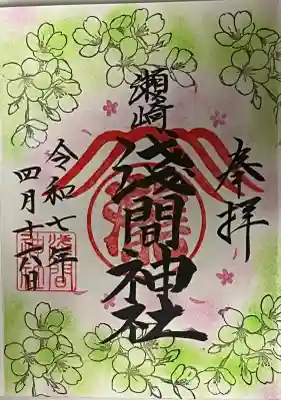 奉拝
瀬崎
浅間神社
令和七年
四月十六日